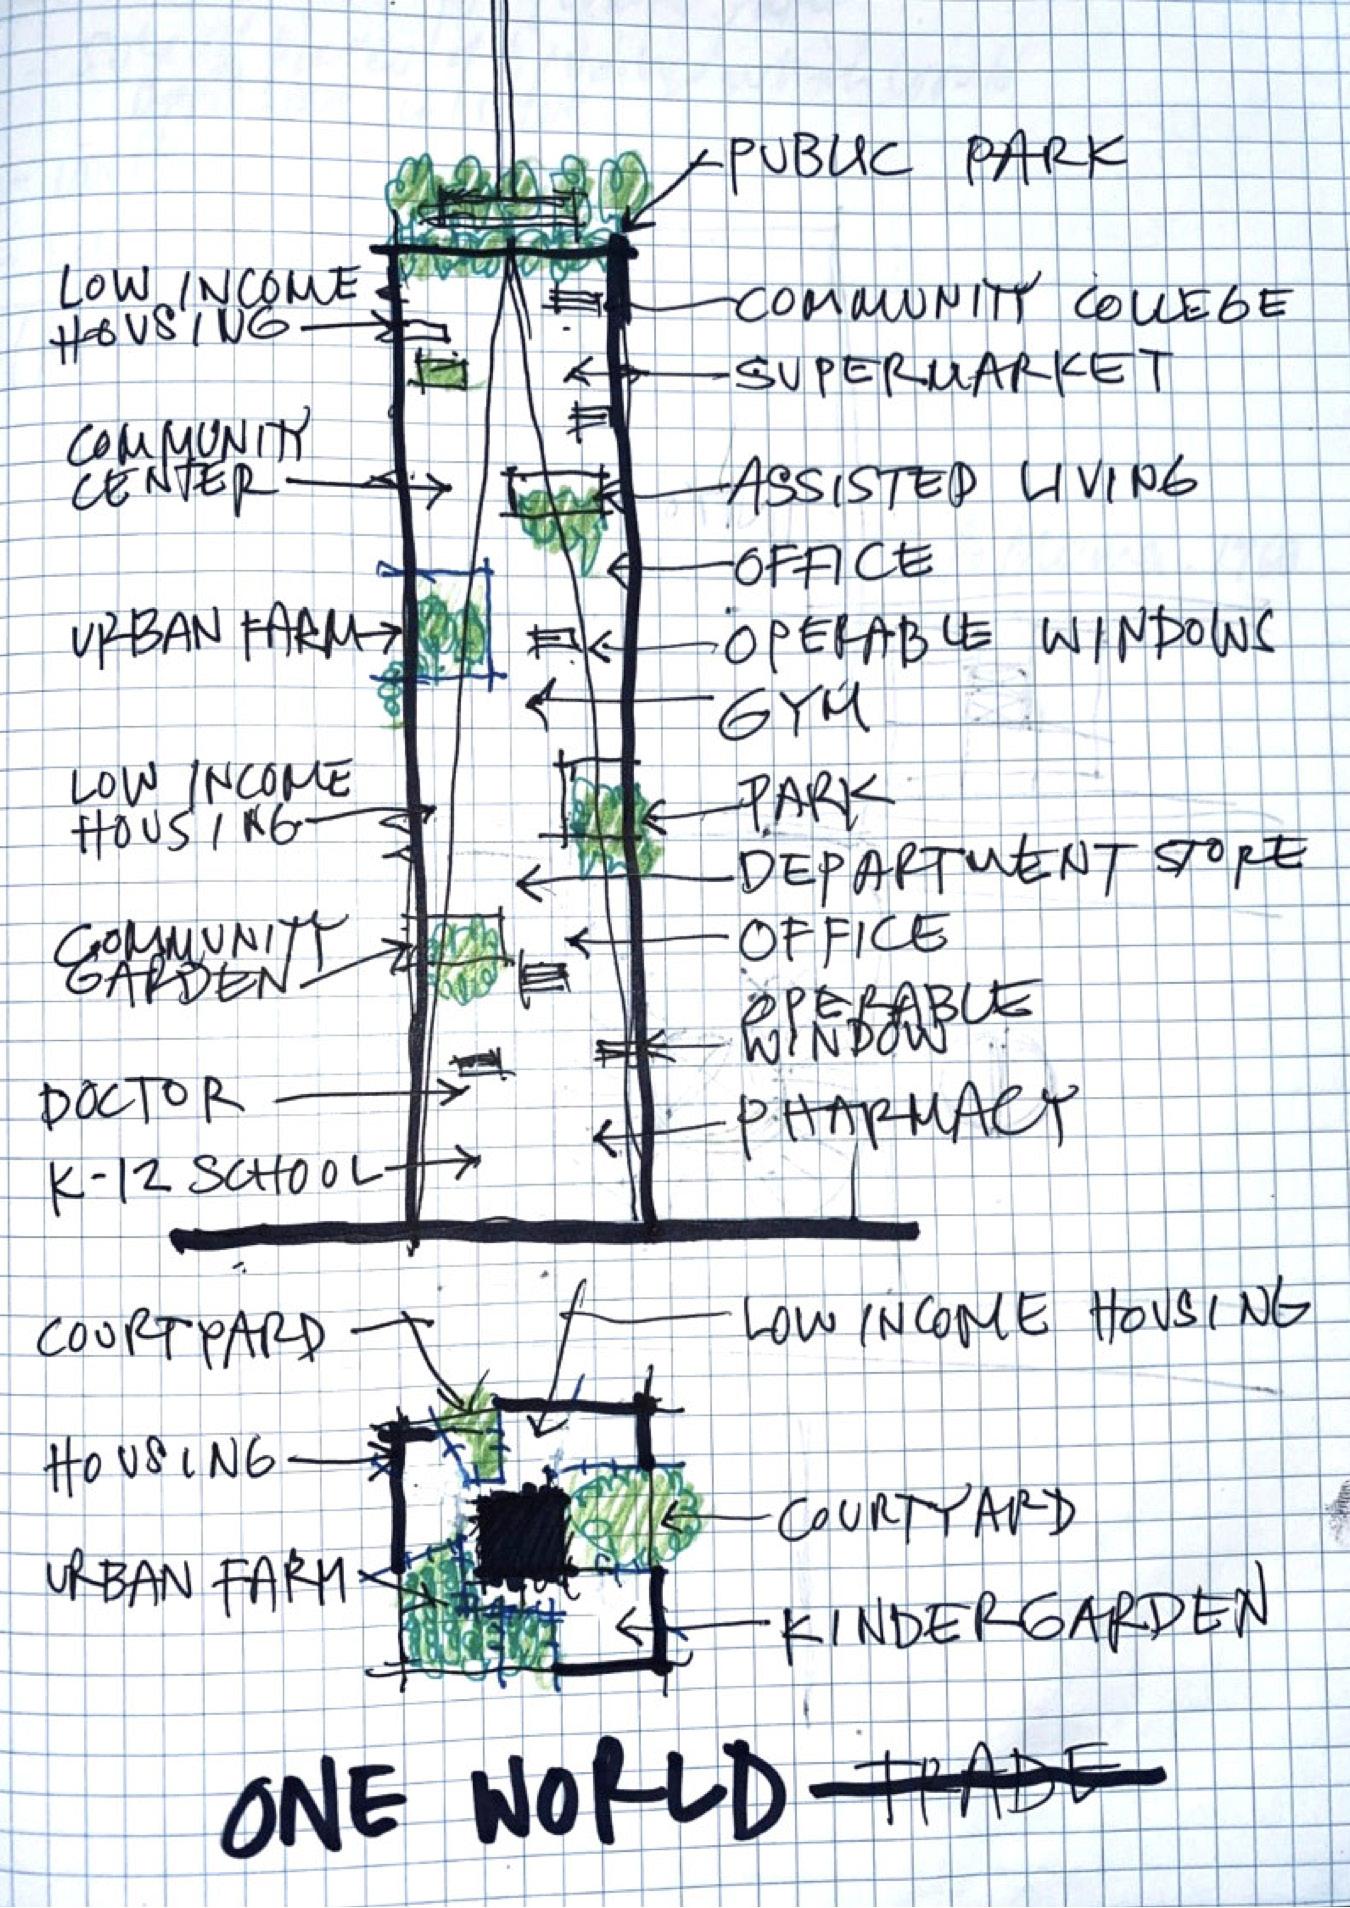 PUBLIC PARK
LOW INCOME
HOUSING
COMMUNITY COLLEGE
SUPERMARKET
COMMUNITY
CENTER
ASSISTED LIVING
OFFICE
URBAN FARM
OPERABLE WINDOWS
GYM
LOW INCOME
HOUSING
PARK
DEPARTMENT STORE
COMMUNITY
GARDEN
OFFICE
OPERABLE
WINDOW
DOCTOR
PHARMACY
K-12 SCHOOL
COURTYARD
LOW INCOME HOUSING
HOUSING
COURTYARD
URBAN FARM
KINDERGARDEN
ONE WORLD TRADE